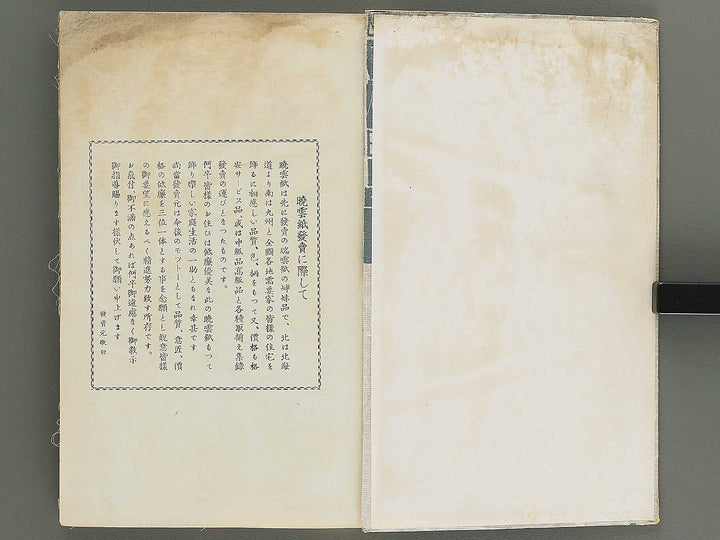 曉雲紙發賣に際して
曉雲紙は先に發賣の瑞雲紙の姉妹品で、北は北海
道より南は九州と全國各地需要家の皆樣の住宅を
飾るに相應しい品質、色、柄をもつて又、價格も格
安サービス品、或は中級品高級品と各種取揃え集錄
發賣の運びとなつたものです。
何卒皆樣のお住ひは低廉優美な此の曉雲紙もつて
飾り樂しい家庭生活の一助ともなれ幸甚です
尚當發賣元は今後のモツトーとして品質、意匠、價
格の低廉を三位一体とする事を念願とし銳意皆樣
の御要望に應えるべく精進努力致す所存です。
お氣付、御不滿の点あれば何卒御遠慮なく御敎示
御指導賜ります樣伏して御願い申上げます
發賣元敬白